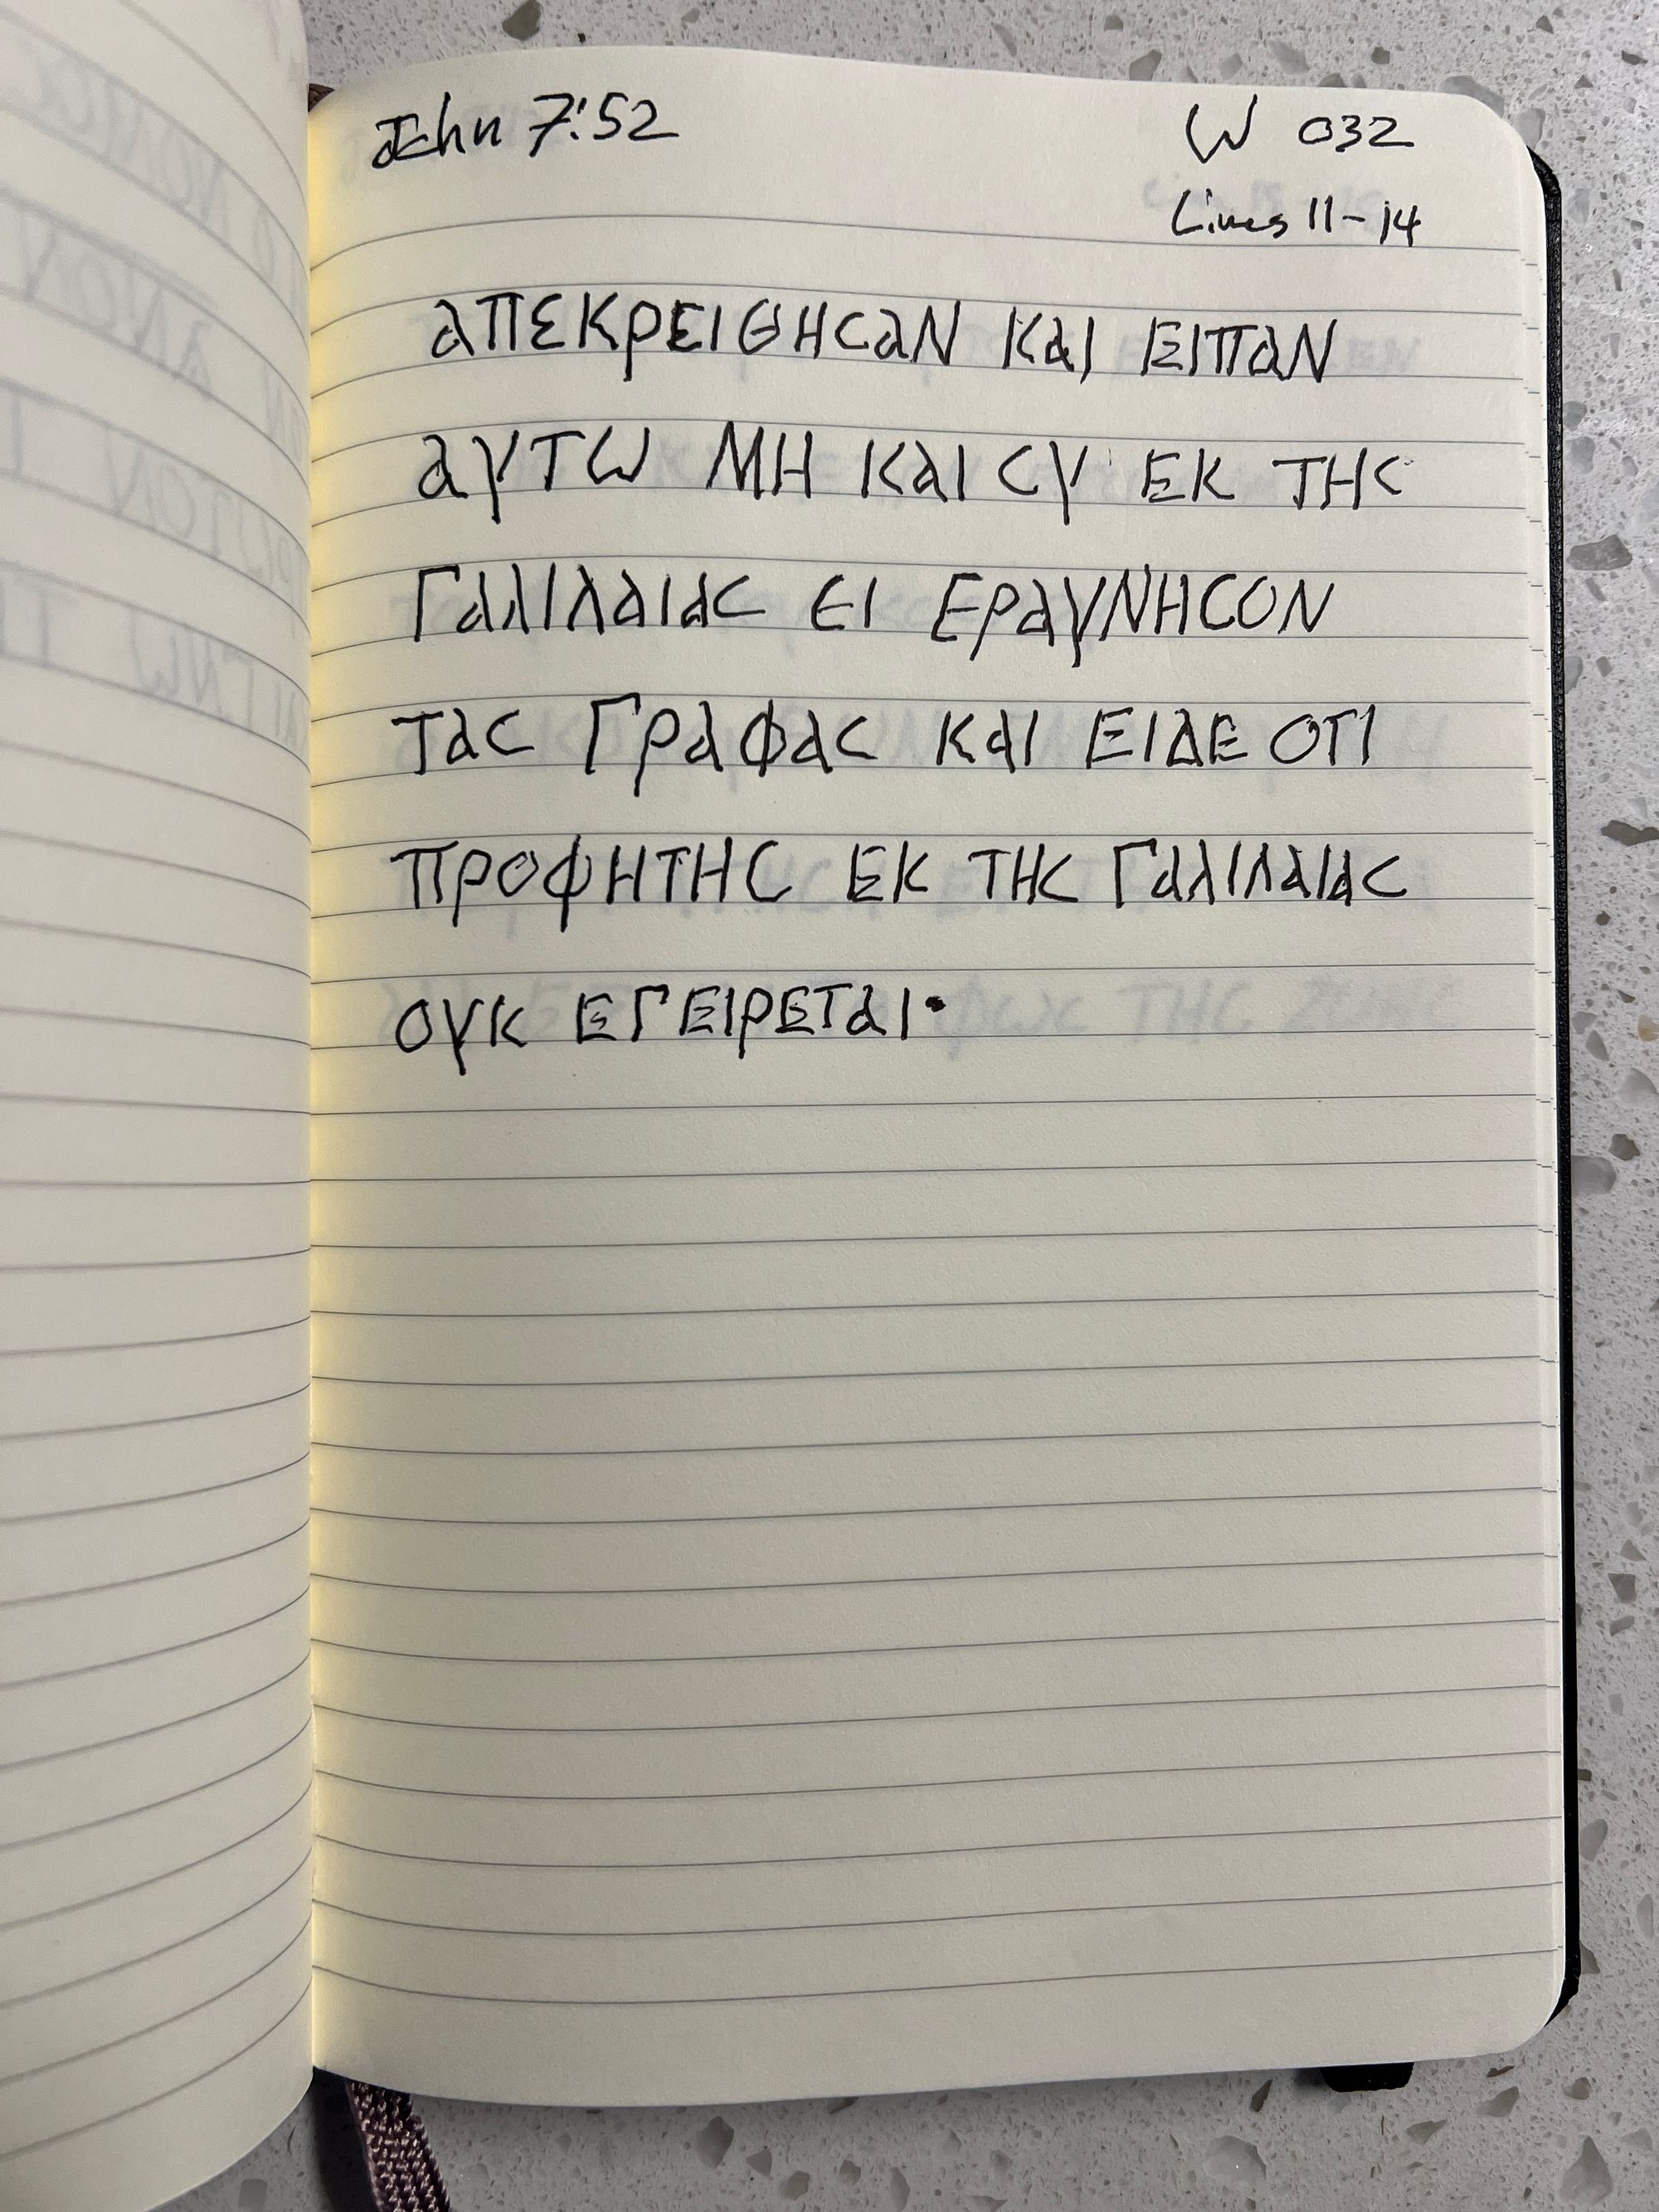 John 7:52 W 032
Lines 11-14
ΑΠΕΚΡΕΙΘΗϹΑΝ ΚΑΙ ΕΙΠΑΝ
ΑΥΤΩ ΜΗ ΚΑΙ ϹΥ ΕΚ ΤΗϹ
ΓΑΛΙΛΑΙΑϹ ΕΙ ΕΡΑΥΝΗϹΟΝ
ΤΑϹ ΓΡΑΦΑϹ ΚΑΙ ΕΙΔΕ ΟΤΙ
ΠΡΟΦΗΤΗϹ ΕΚ ΤΗϹ ΓΑΛΙΛΑΙΑϹ
ΟΥΚ ΕΓΕΙΡΕΤΑΙ·